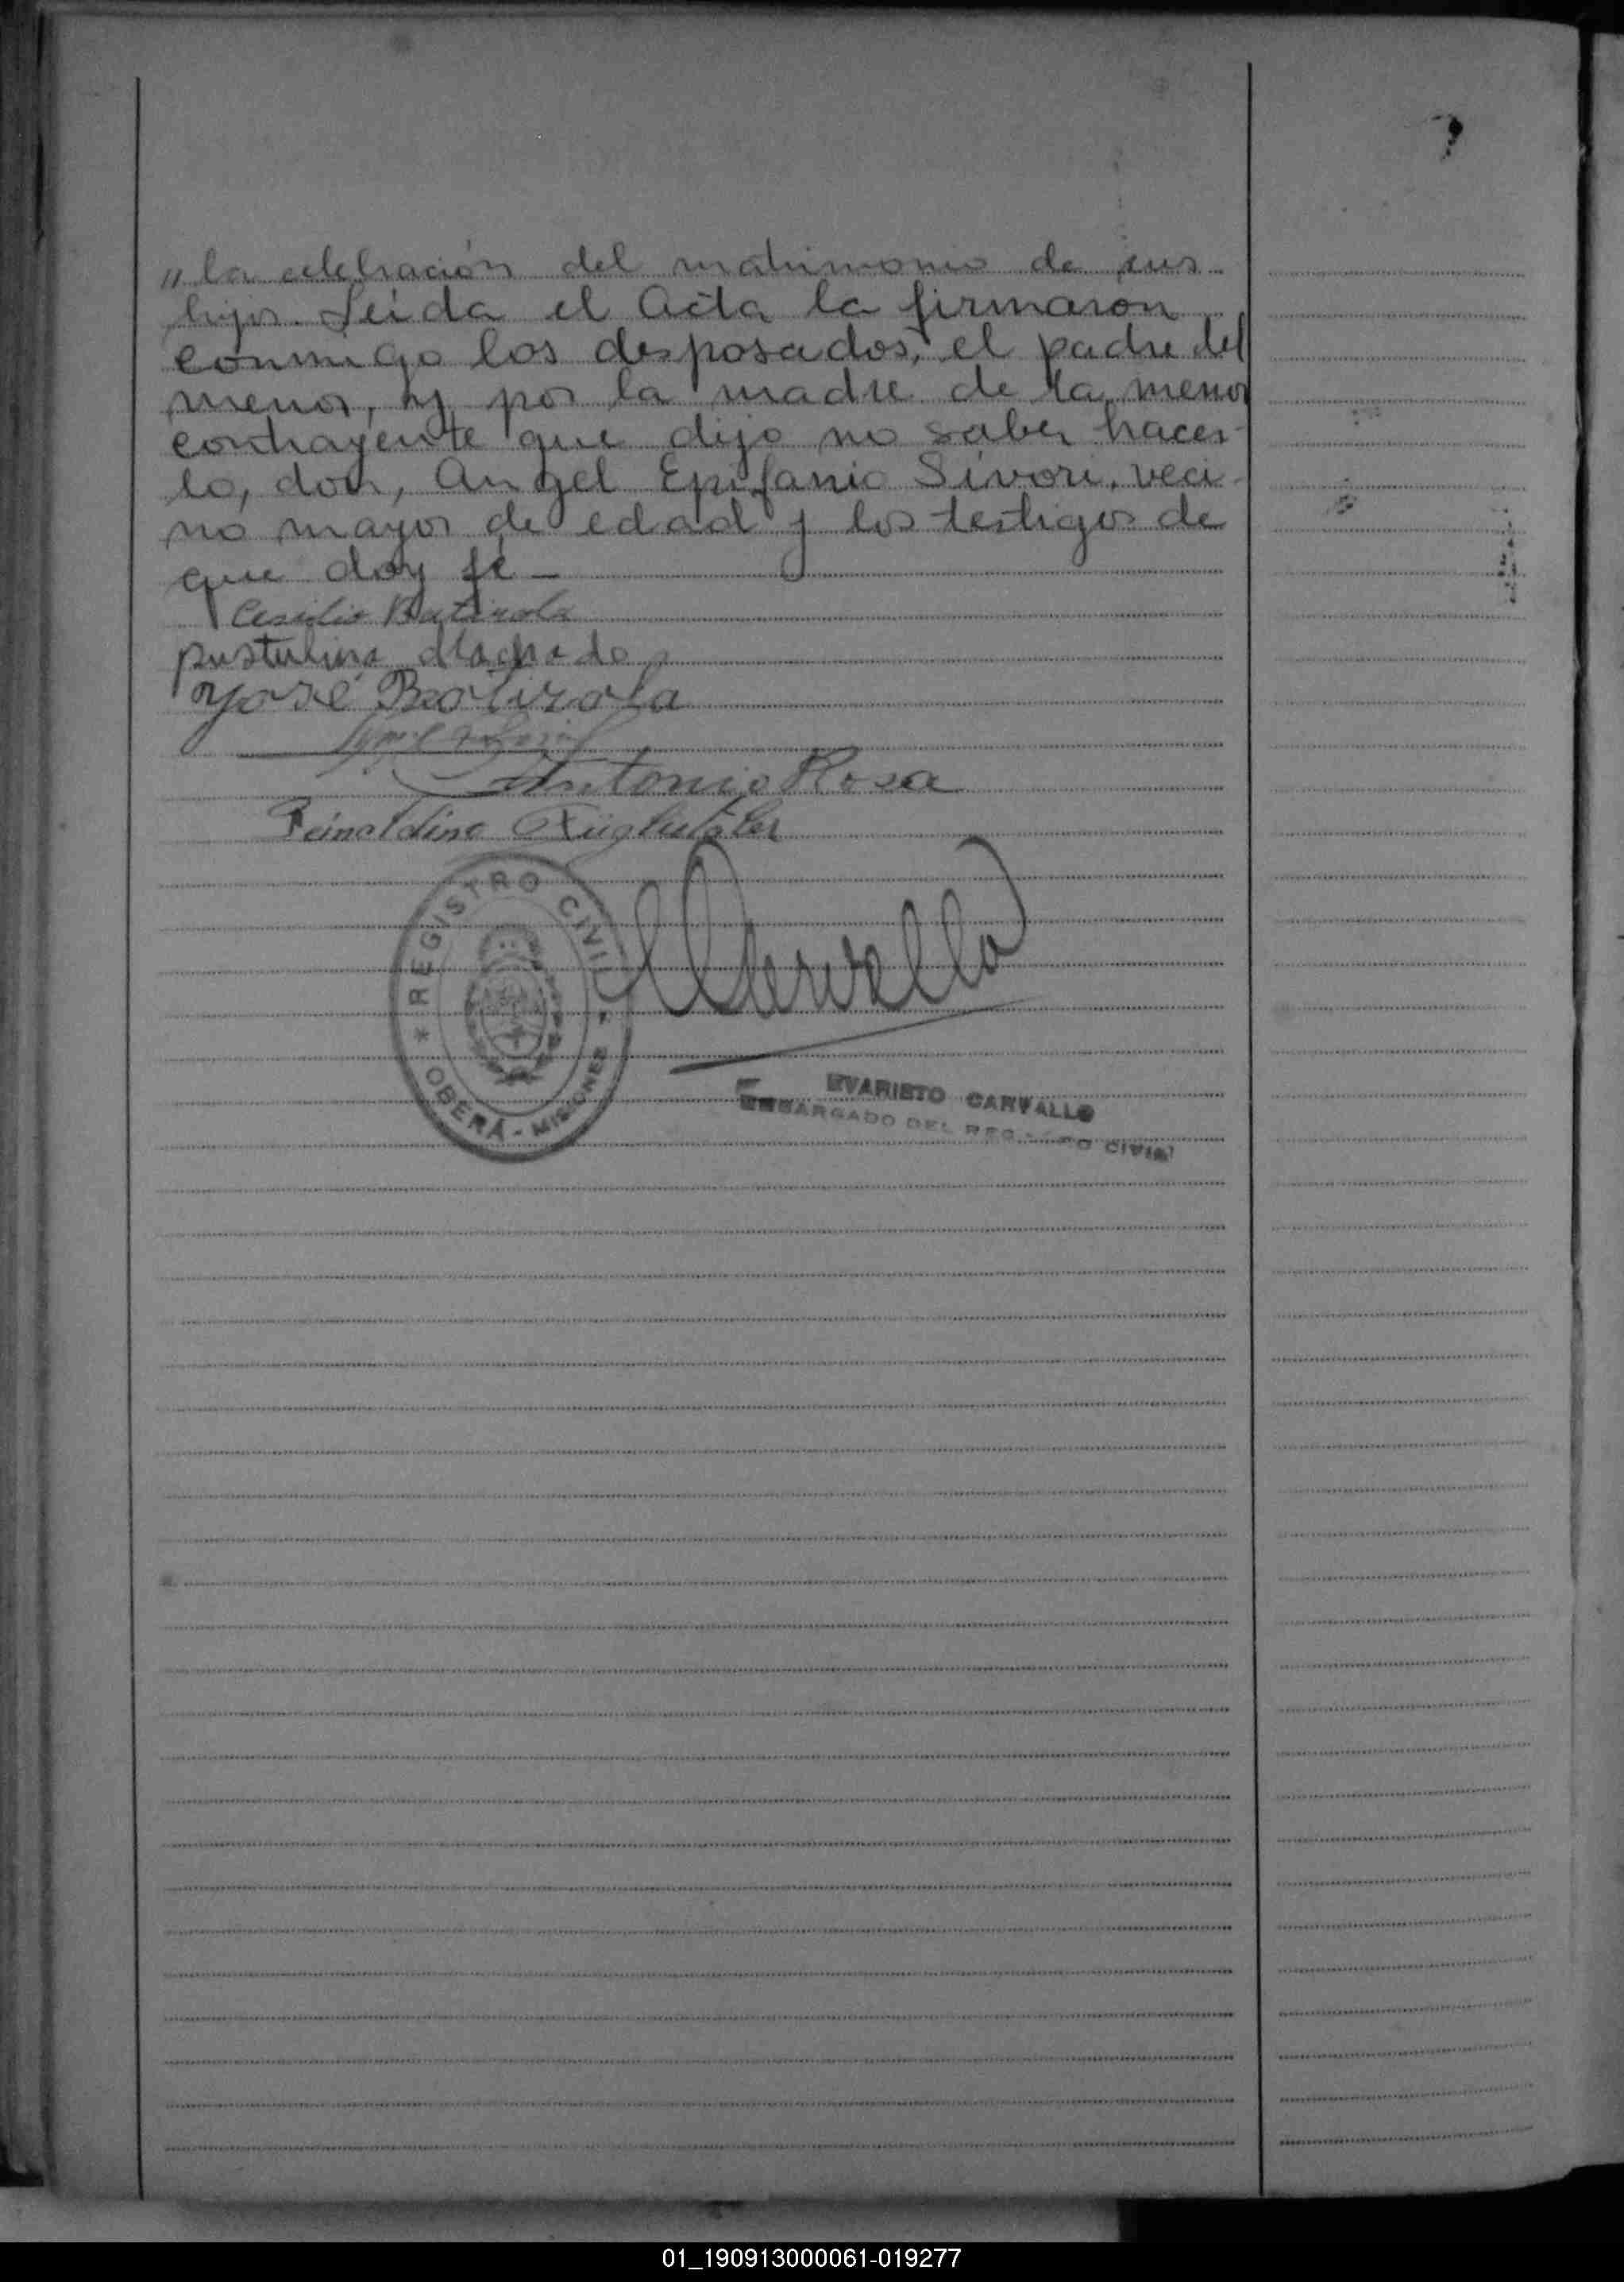 " la celebración del matrimonio de sus
hijos. Leída el Acta la firmaron
conmigo los desposados, el padre del
menor, y por la madre de la menor
contrayente que dijo no saber hacer-
lo, don, Angel Epifanio Sívori, veci-
no mayor de edad y los testigos de
que doy fé —
Batirola
Machado
José Batirola
Antonio Rosa
Reinoldino
Carvallo
* REGISTRO CIVIL *
OBERÁ - MISIONES
EVARISTO CARVALLO
ENCARGADO DEL REGISTRO CIVIL
01_190913000061-019277